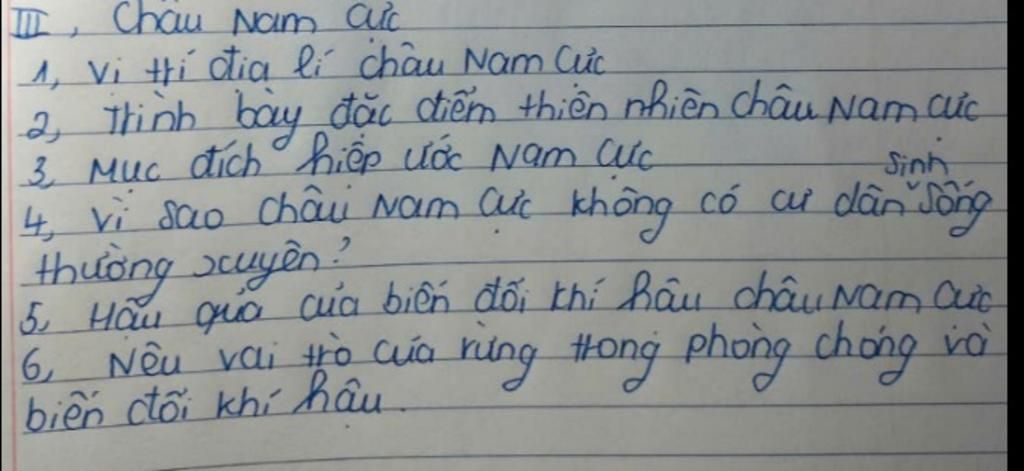 III, Châu Nam Cực
1, Vị trí địa lí châu Nam Cực
2, Trình bày đặc điểm thiên nhiên châu Nam Cực
3, Mục đích hiệp ước Nam Cực
sinh
4, Vì sao Châu Nam Cực không có cư dân sống
thường xuyên?
5, Hậu quả của biến đổi khí hậu châu Nam Cực
6, Nêu vai trò của rừng trong phòng chống và
biến đổi khí hậu.